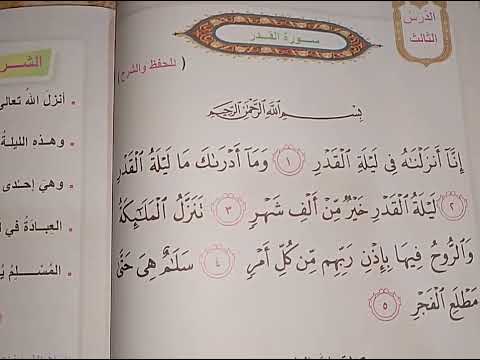 الدرس
الثالث
سورة القدر
(للحفظ والشرح)
بِسْمِ اللَّهِ الرَّحْمَٰنِ الرَّحِيمِ
إِنَّآ أَنزَلْنَٰهُ فِى لَيْلَةِ ٱلْقَدْرِ ١ وَمَآ أَدْرَىٰكَ مَا لَيْلَةُ ٱلْقَدْرِ
٢ لَيْلَةُ ٱلْقَدْرِ خَيْرٌ مِّنْ أَلْفِ شَهْرٍ ٣ تَنَزَّلُ ٱلْمَلَٰٓئِكَةُ
وَٱلرُّوحُ فِيهَا بِإِذْنِ رَبِّهِم مِّن كُلِّ أَمْرٍ ٤ سَلَٰمٌ هِىَ حَتَّىٰ
مَطْلَعِ ٱلْفَجْرِ ٥
الشر
أنزل الله تعالى
وهذه الليلة
وهي إحدى
العبادة في
المسلم